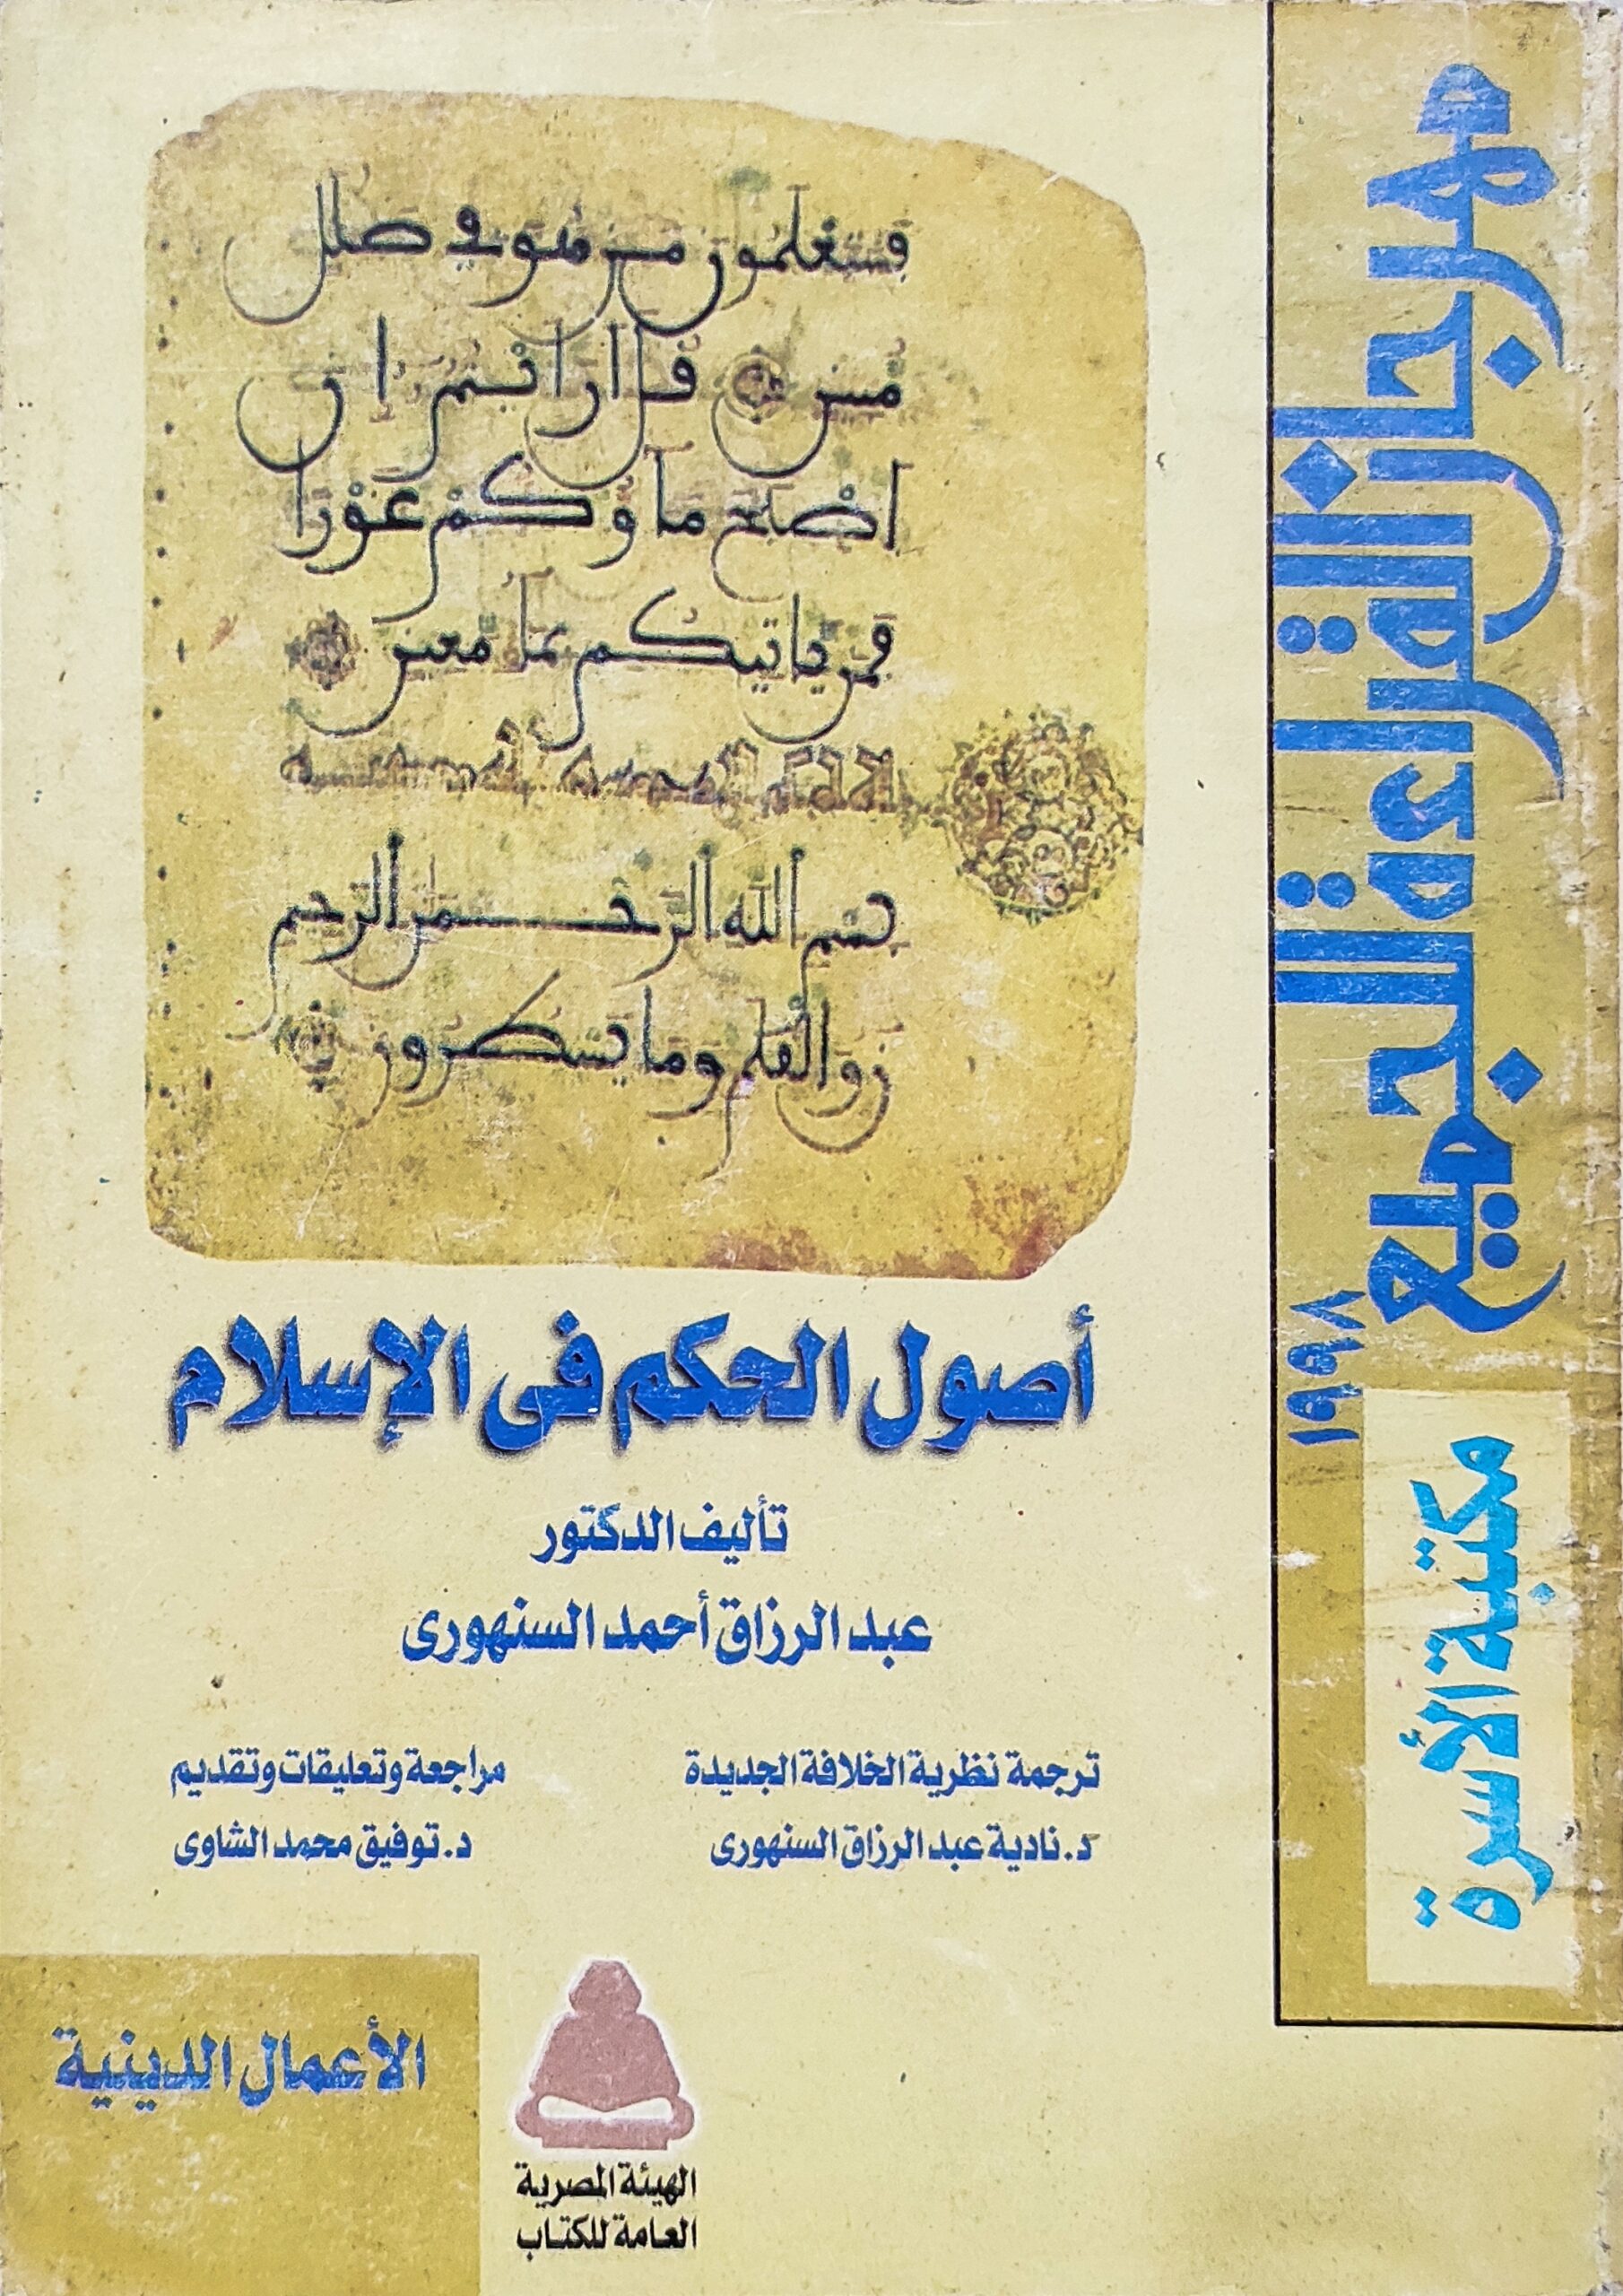 فستعلمون من هو في ضلل
مبين قل ارايتم ان
اصبح ماؤكم غورا
فمن ياتيكم بما معين
بسم الله الرحمن الرحيم
ن والقلم وما يسطرون
أصول الحكم فى الإسلام
تأليف الدكتور
عبد الرزاق أحمد السنهورى
ترجمة نظرية الخلافة الجديدة
د. نادية عبد الرزاق السنهورى
مراجعة وتعليقات وتقديم
د. توفيق محمد الشاوى
الأعمال الدينية
الهيئة المصرية
العامة للكتاب
مهرجان القراءة للجميع
١٩٩٨
مكتبة الأسرة